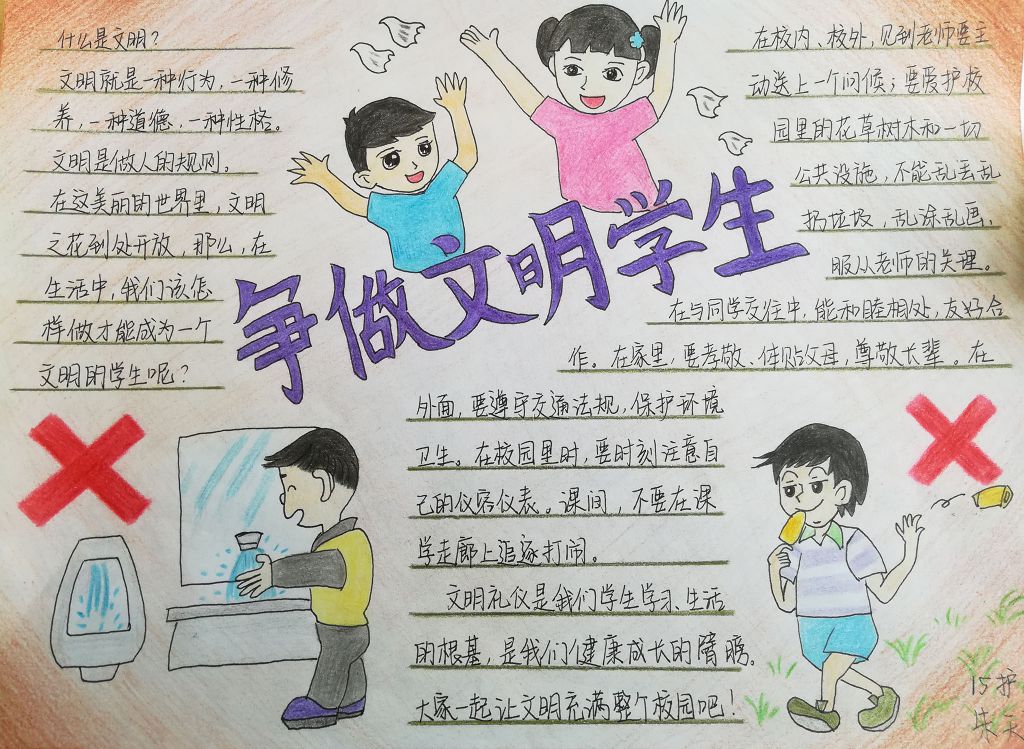 什么是文明?
文明就是一种行为,一种修
养,一种道德,一种性格。
文明是做人的规则。
在这美丽的世界里,文明
之花到处开放,那么,在
生活中,我们该怎
样做才能成为一个
文明的学生呢?
争做文明学生
在校内、校外,见到老师要主
动送上一个问候;要爱护校
园里的花草树木和一切
公共设施,不能乱丢乱
扔垃圾,乱涂乱画,
服从老师的关理。
在与同学交往中,能和睦相处,友好合
作。在家里,要孝敬、体贴父母,尊敬长辈。在
外面,要遵守交通法规,保护环境
卫生。在校园里时,要时刻注意自
己的仪容仪表。课间,不要在课
学走廊上追逐打闹。
文明礼仪是我们学生学习、生活
的根基,是我们健康成长的臂膀。
大家一起让文明充满整个校园吧!
15护